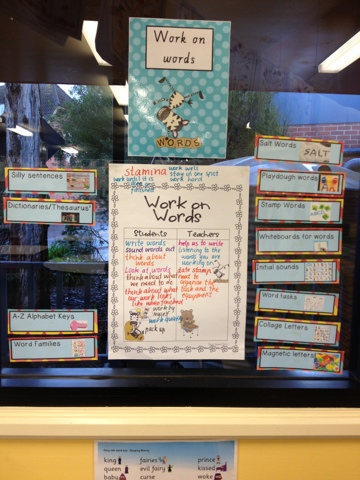 Work on
words
WORDS
stamina work well
stay in one spot
work until it is finished
work hard!
Silly sentences
Dictionaries/Thesaurus
A-Z Alphabet Keys
Word Families
Work on
Words
Students
write words
sound words out
think about
words
Look at words
think about what
we need to do
think about what
our work looks
like when finished
work by
myself
work quietly
pack up
Teachers
help us to write
Listening to the
words you are
working on
date stamps
need to
organise the
book and the
equipment
Salt Words
SALT
Playdough words
Stamp Words
Whiteboards for words
Initial sounds
Word tasks
Collage Letters
Magnetic letters
king
queen
baby
fairies
evil fairy
curse
prince
kissed
woke